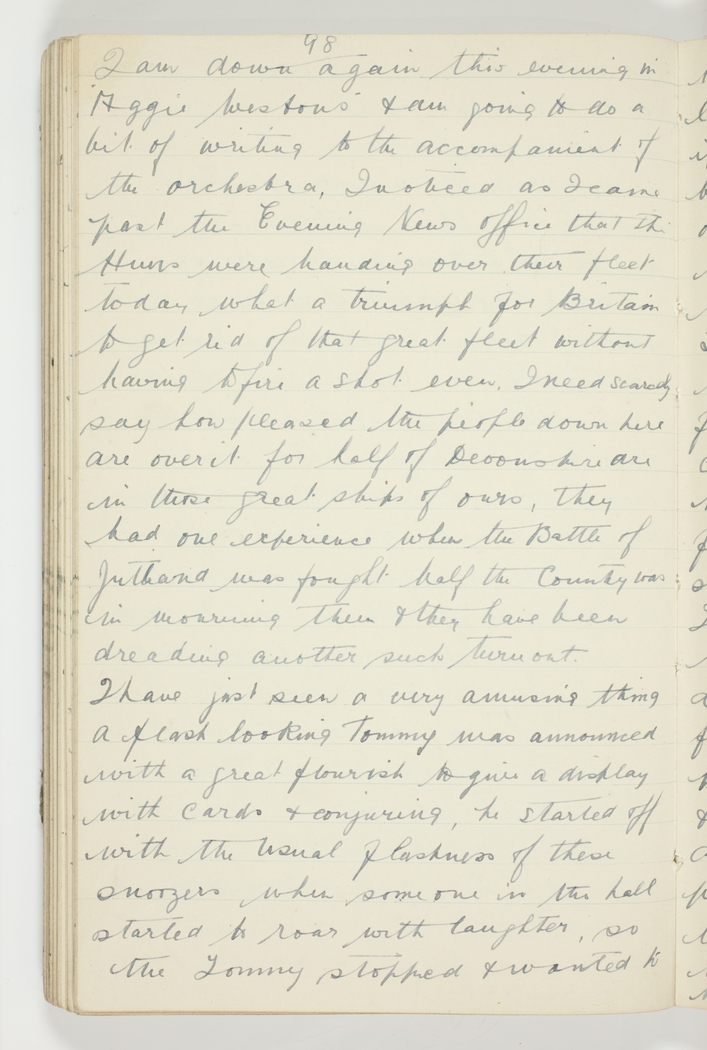 98
I am down again this evening in
"Aggie Weston's" & am going to do a
bit of writing to the accompanient of
the orchestra, I noticed as I came
past the Evening News office that the
Huns were handing over their fleet
today what a triumph for Britain
to get rid of that great fleet without
having to fire a shot even. I need scarcely
say how pleased the people down here
are over it for half of Devonshire are
in those great ships of ours, they
had one experience when the Battle of
Jutland was fought half the County was
in mourning then & they have been
dreading another such turn out.
I have just seen a very amusing thing
a flash looking Tommy was announced
with a great flourish to give a display
with cards & conjuring, he started off
with the usual flashness of these
snoozers when some one in the hall
started to roar with laughter, so
the Tommy stopped & wanted to